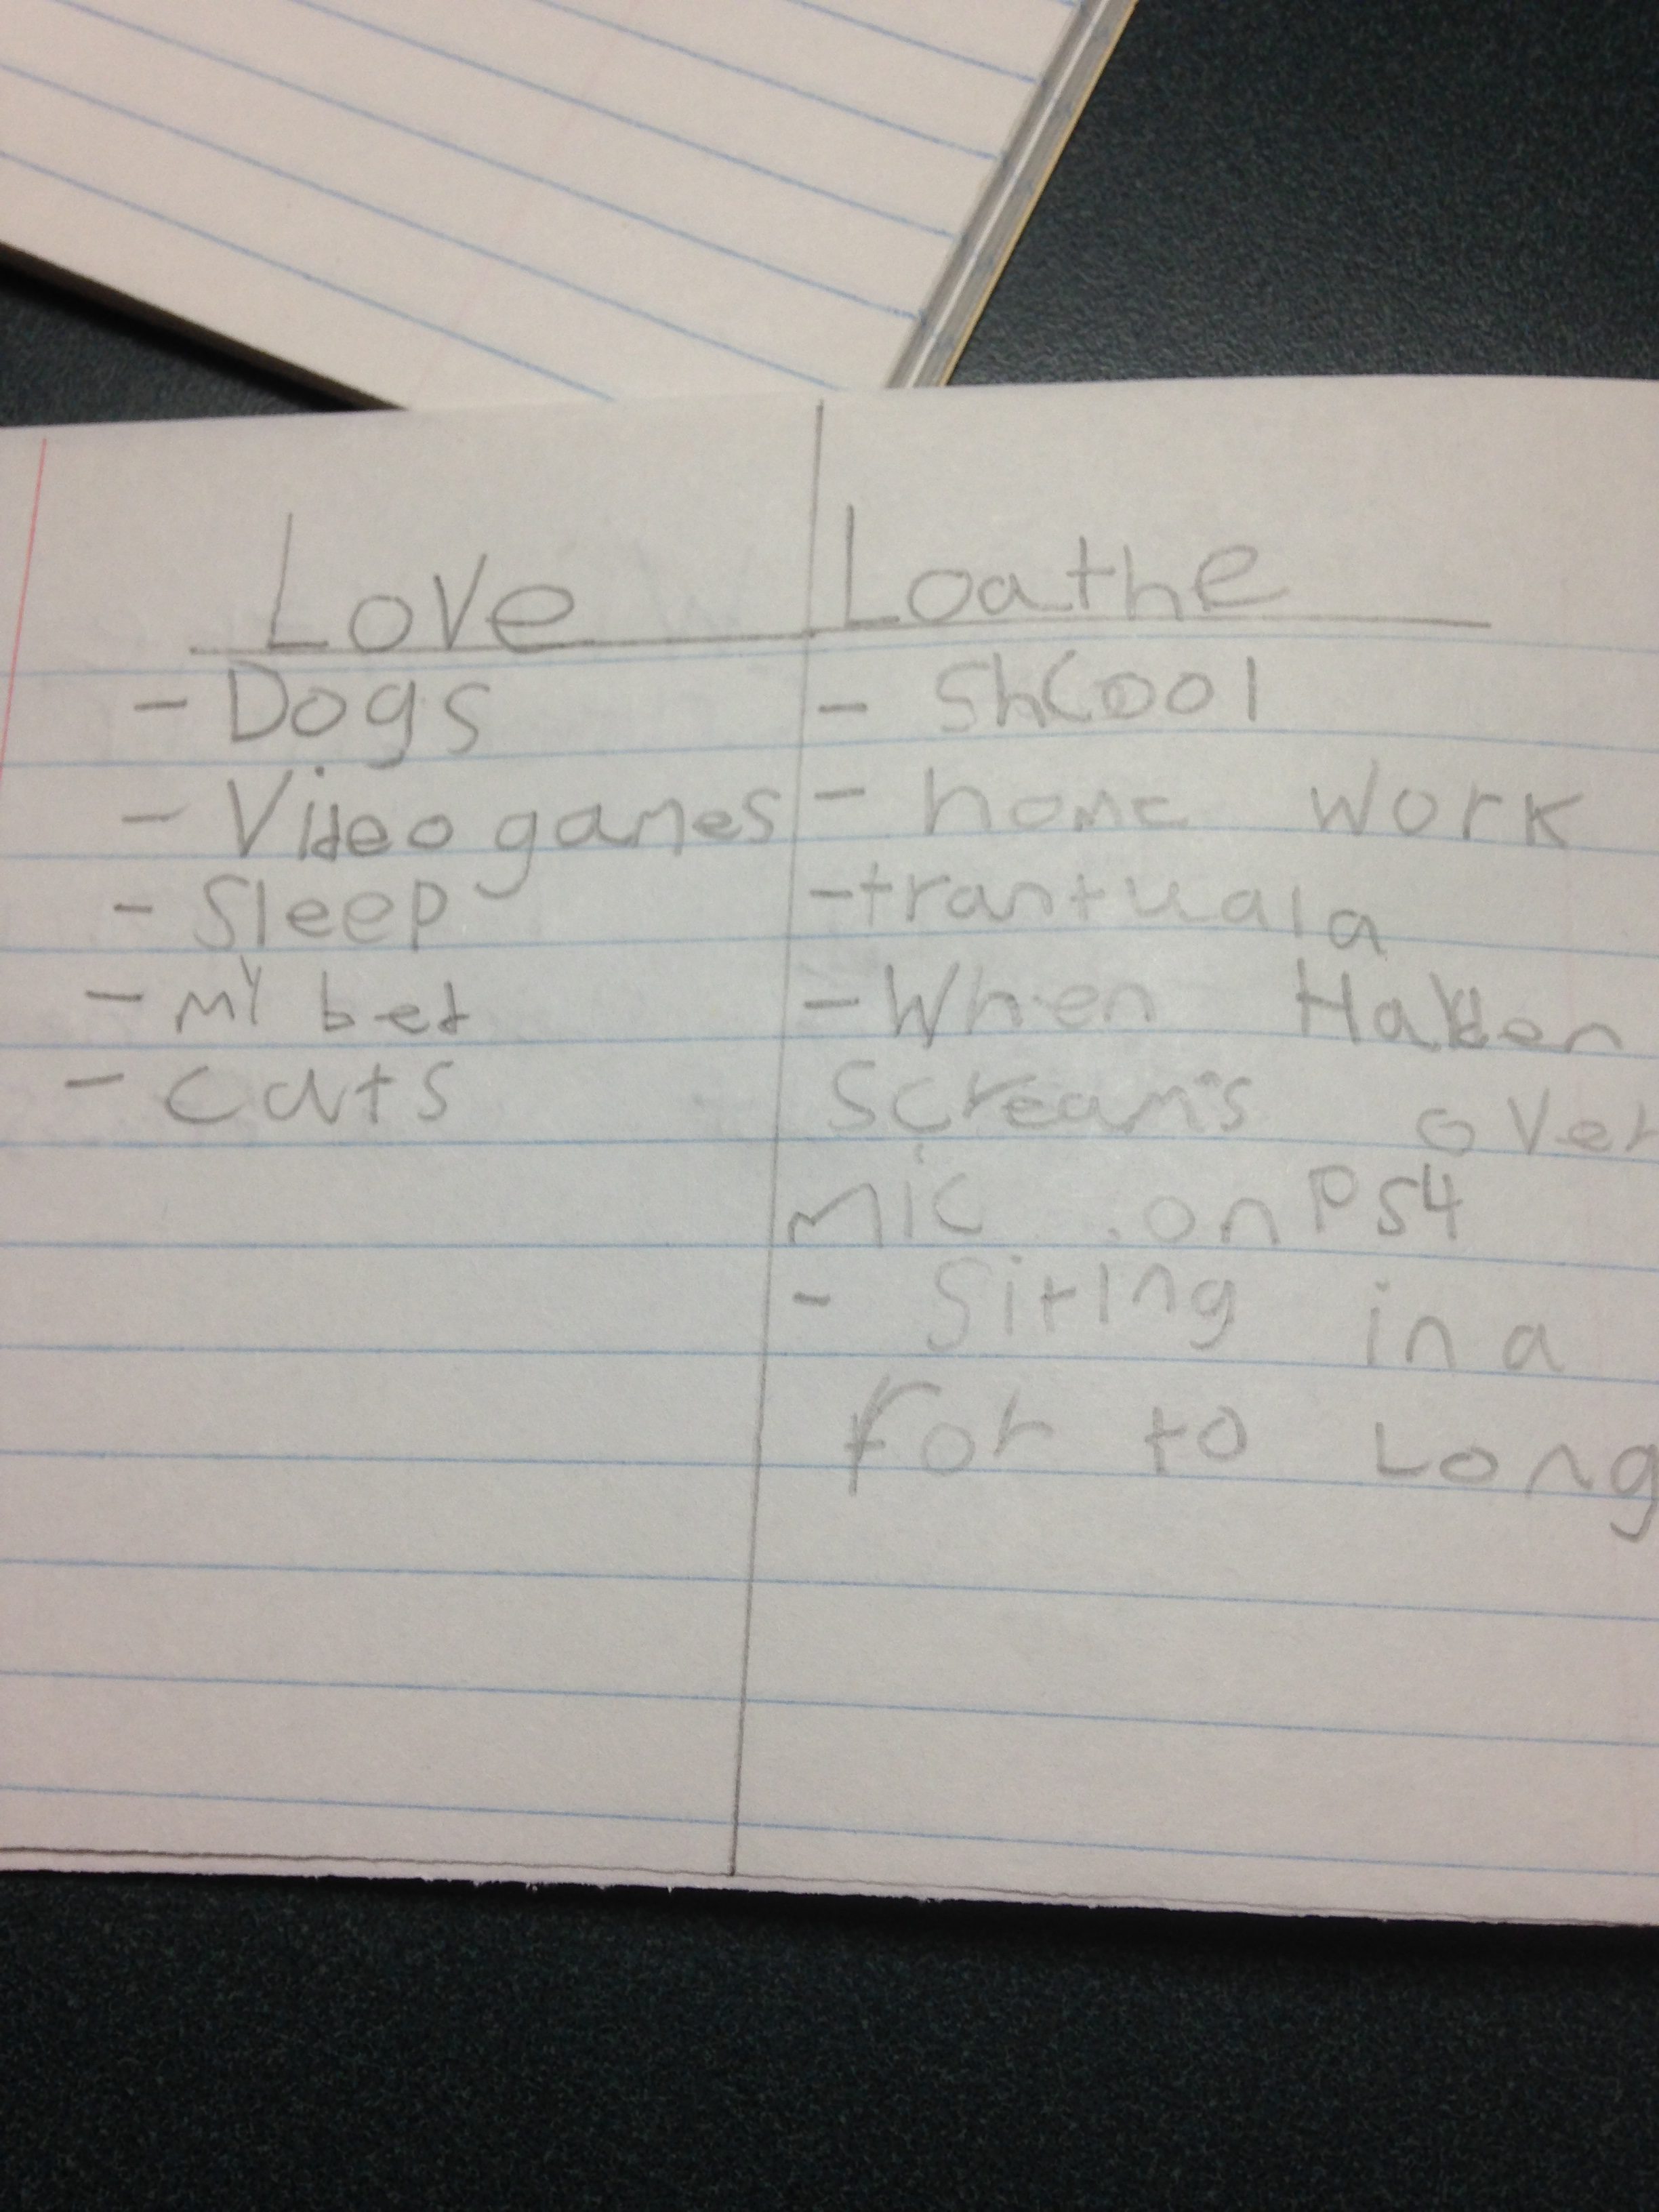 Love
- Dogs
- Video games
- Sleep
- my bed
- cats
Loathe
- Shcool
- home work
- trantuala
- When Hayden
Screams over
mic on PS4
- Siting in a
for to Long